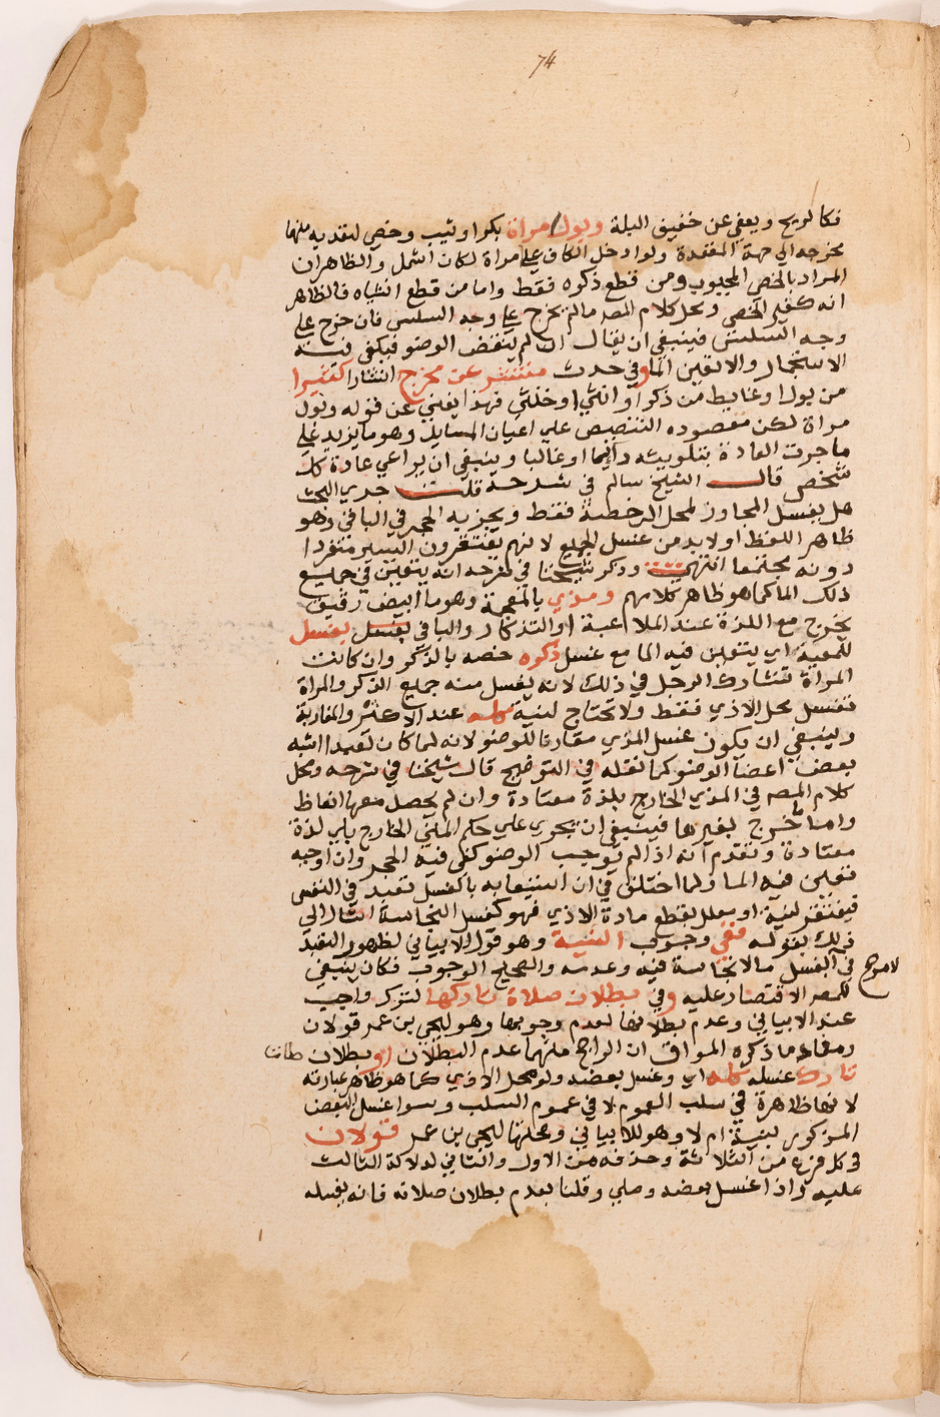 74
فكالريح ويعفي عن خفيف البلة وبول امراة بكرا وثيب وخصي لتعديه منهما
مخرجه الي جهة المقعدة ولو ادخل الكاف علي مراة لكان اشمل والظاهر ان
المراد بالخصي المجبوب ومن قطع ذكره فقط واما من قطع انثياه فالظاهر
انه كغير الخصي ومحل كلام المصه مالم يخرج علي وجه السلس فان خرج علي
وجه السلس فينبغي ان يقال ان لم ينقض الوضو فيكفي فيه
الاستجمار والا تعين الما وفي حدث منتشر عن مخرج انتشارا كثيرا
من بول او غايط من ذكر او انثي او خنثي فهذا يغني عن قوله وبول
مراة لكن مقصوده التنصيص علي اعيان المسايل وهو ما يزيد علي
ما جرت العادة بتلويثه دايما او غالبا وينبغي ان يراعي عادة كل
شخص قال الشيخ سالم في شرحه قلت جري البحث
هل يغسل المجاوز لمحل الرخصة فقط ويجزيه الحجر في الباقي وهو
ظاهر اللفظ اولا بد من غسل الجميع لانهم يغتفرون اليسير منفردا
دونه مجتمعا انتهي وذكر شيخنا في شرحه انه يتعين في جميع
ذلك الما كما هو ظاهر كلامهم ومذي بالمعجمة وهو ما ابيض رقيق
يخرج مع اللذة عند الملاعبة او التذكار والباقي بغسل بغسل
للمعية اي يتعين فيه الما مع غسل ذكره خصه بالذكر وان كانت
المراة تشارك الرجل في ذلك لانه يغسل منه جميع الذكر والمراة
تغسل محل الاذي فقط ولا تحتاج لنية كله عند الاكثر والمغاربة
وينبغي ان يكون غسل المذي مقارنا للوضو لانه لما كان تعبدا اشبه
بعض اعضا الوضو كما نقله في التوضيح قال شيخنا في شرحه ومحل
كلام المصه في المذي الخارج بلذة معتادة وان لم يحصل معها انعاظ
واما ما خرج بغيرها فينبغي ان يجري علي حكم المني الخارج بلا لذة
معتادة وتقدم انه اذا لم يوجب الوضو كفي فيه الحجر وان اوجبه
تعين فيه الما ولما اختلف في ان استيعابه بالغسل تعبد في النفس
فيفتقر لنية او معلل بقطع مادة الاذي فهو كغسل النجاسة اشار الي
ذلك بقوله ففي وجوب النية وهو قول الابياني لظهور التعبد
في الغسل ما لا نجاسة فيه وعدمه والصحيح الوجوب فكان ينبغي
للمصه الاقتصار عليه وفي بطلان صلاة تاركها لترك واجب
عند الابياني وعدم بطلانها لعدم وجوبها وهو ليحيي بن عمر قولان
ومفاد ما ذكره المواق ان الراجح منهما عدم البطلان او بطلان صلاة
تارك غسله كله اي وغسل بعضه ولو محل الاذي كما هو ظاهر عبارته
لانها ظاهرة في سلب العموم لا في عموم السلب وسوا غسل البعض
المذكور بنية ام لا وهو للابياني وصحتها ليحيي بن عمر قولان
في كل فرع من الثلاثة وحذفه من الاول والثاني لدلالة الثالث
عليه واذا غسل بعضه وصلي وقلنا بعدم بطلان صلاته فانه يغسله